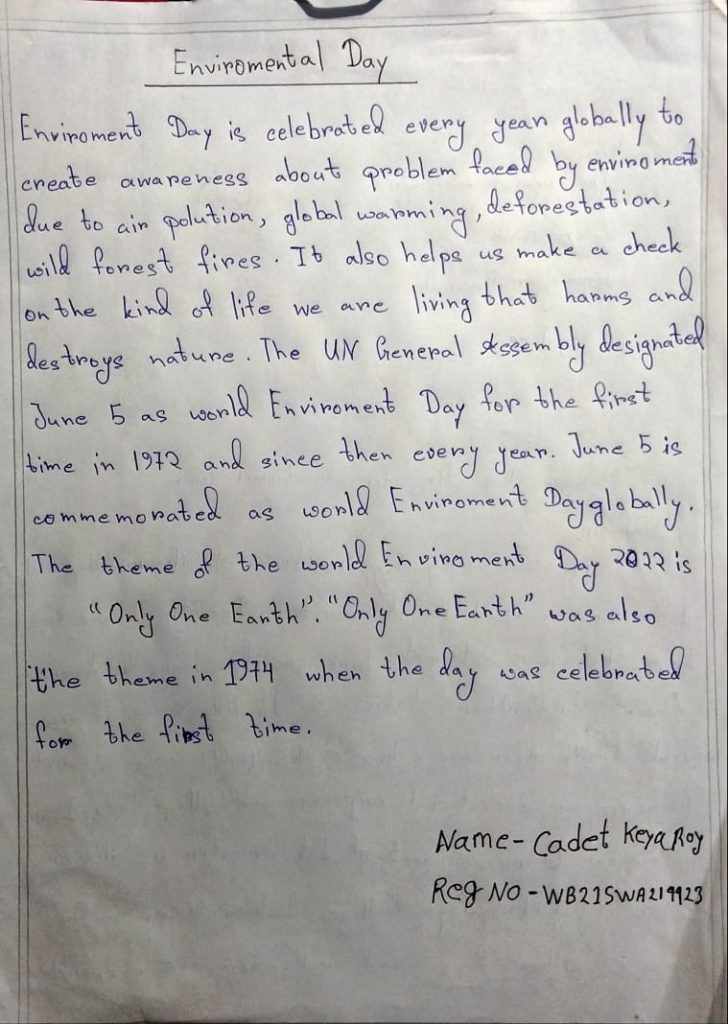 Enviromental Day
Enviroment Day is celebrated every year globally to
create awareness about problem faced by enviroment
due to air polution, global warming, deforestation,
wild forest fires. It also helps us make a check
on the kind of life we are living that harms and
destroys nature. The UN General Assembly designated
June 5 as world Enviroment Day for the first
time in 1972 and since then every year. June 5 is
commemorated as world Enviroment Day globally.
The theme of the world Enviroment Day 2022 is
"Only One Earth". "Only One Earth" was also
the theme in 1974 when the day was celebrated
for the first time.
Name- Cadet Keya Roy
Reg No - WB21SWA219923